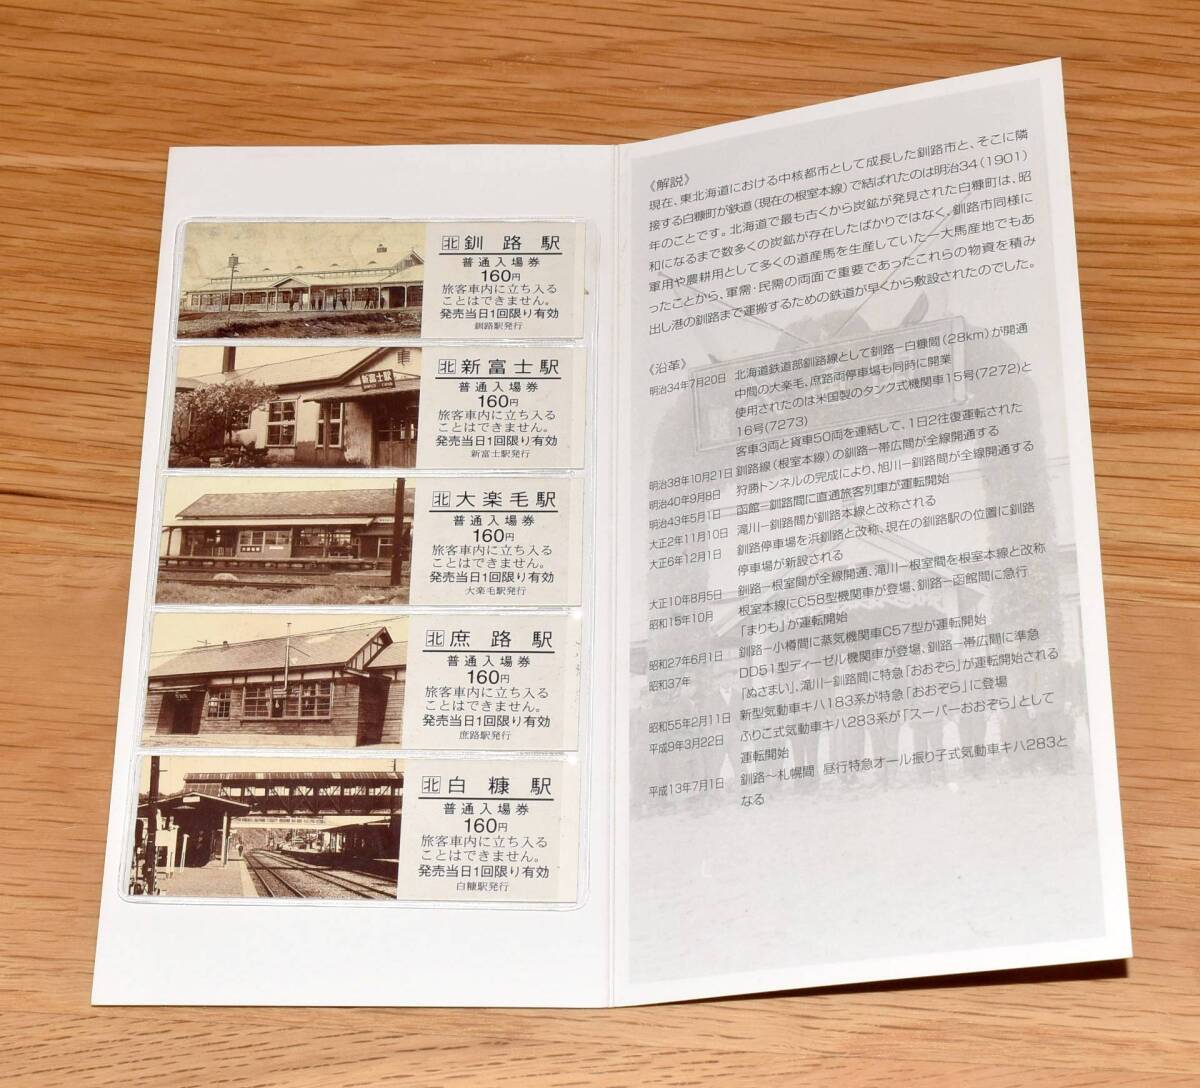 北 釧路駅
普通入場券
160円
旅客車内に立ち入る
ことはできません。
発売当日1回限り有効
釧路駅発行
新富士駅
北 新富士駅
普通入場券
160円
旅客車内に立ち入る
ことはできません。
発売当日1回限り有効
新富士駅発行
北 大楽毛駅
普通入場券
160円
旅客車内に立ち入る
ことはできません。
発売当日1回限り有効
大楽毛駅発行
北 庶路駅
普通入場券
160円
旅客車内に立ち入る
ことはできません。
発売当日1回限り有効
庶路駅発行
北 白糠駅
普通入場券
160円
旅客車内に立ち入る
ことはできません。
発売当日1回限り有効
白糠駅発行
《解説》
現在、東北海道における中核都市として成長した釧路市と、そこに隣
接する白糠町が鉄道(現在の根室本線)で結ばれたのは明治34(1901)
年のことです。北海道で最も古くから炭鉱が発見された白糠町は、昭
和になるまで数多くの炭鉱が存在したばかりではなく、釧路市同様に
軍用や農耕用として多くの道産馬を生産していた一大馬産地でもあ
ったことから、軍需・民需の両面で重要であったこれらの物資を積み
出し港の釧路まで運搬するための鉄道が早くから敷設されたのでした。
《沿革》
明治34年7月20日 北海道鉄道部釧路線として釧路－白糠間(28km)が開通
中間の大楽毛、庶路両停車場も同時に開業
使用されたのは米国製のタンク式機関車15号(7272)と
16号(7273)
客車3両と貨車50両を連結して、1日2往復運転された
明治38年10月21日 釧路線(根室本線)の釧路－帯広間が全線開通する
明治40年9月8日 狩勝トンネルの完成により、旭川－釧路間が全線開通する
明治43年5月1日 函館－釧路間に直通旅客列車が運転開始
大正2年11月10日 滝川－釧路間が釧路本線と改称される
大正6年12月1日 釧路停車場を浜釧路と改称、現在の釧路駅の位置に釧路
停車場が新設される
大正10年8月5日 釧路－根室間が全線開通、滝川－根室間を根室本線と改称
昭和15年10月 根室本線にC58型機関車が登場、釧路－函館間に急行
「まりも」が運転開始
昭和27年6月1日 釧路－小樽間に蒸気機関車C57型が運転開始
昭和37年 DD51型ディーゼル機関車が登場、釧路－帯広間に準急
「ぬさまい」、滝川－釧路間に特急「おおぞら」が運転開始される
昭和55年2月11日 新型気動車キハ183系が特急「おおぞら」に登場
平成9年3月22日 ふりこ式気動車キハ283系が「スーパーおおぞら」として
運転開始
平成13年7月1日 釧路～札幌間 昼行特急オール振り子式気動車キハ283と
なる